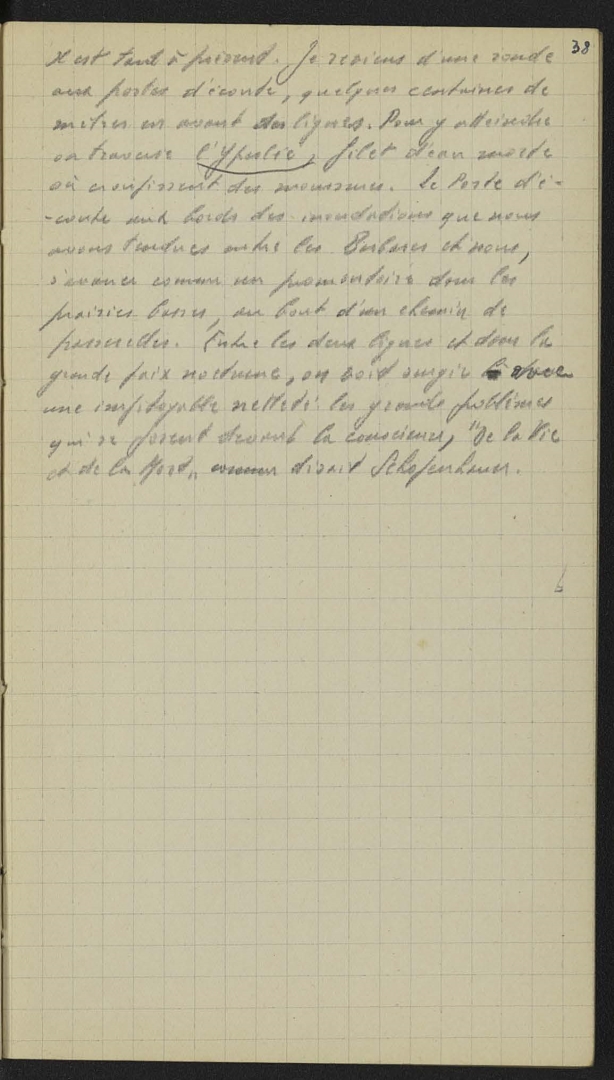 38
Il est tard à présent. Je reviens d'une ronde
aux postes d'écoute, quelques centaines de
mètres en avant des lignes. Pour y atteindre
on traverse l'Yperlée, filet d'eau morte
où croupissent des mousses. Le Poste d'é-
-coute aux bords des inondations que nous
avons tendues entre les Barbares et nous,
s'avance comme un promontoire dans les
prairies basses, au bout d'un chemin de
passerelles. Entre les deux lignes et dans la
grande paix nocturne, on voit surgir avec
une impitoyable netteté les grands problèmes
qui se posent devant la conscience, "De la Vie
et de la Mort" comme disait Schopenhauer.